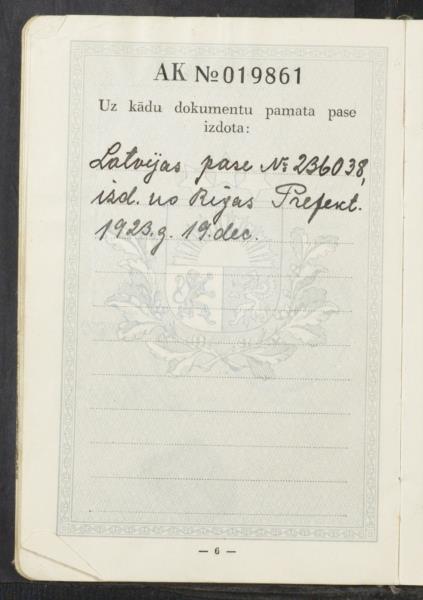 AK № 019861
Uz kādu dokumentu pamata pase
izdota:
Latvijas pase № 236038,
izd. no Rīgas Prefekt.
1923. g. 19. dec.
— 6 —